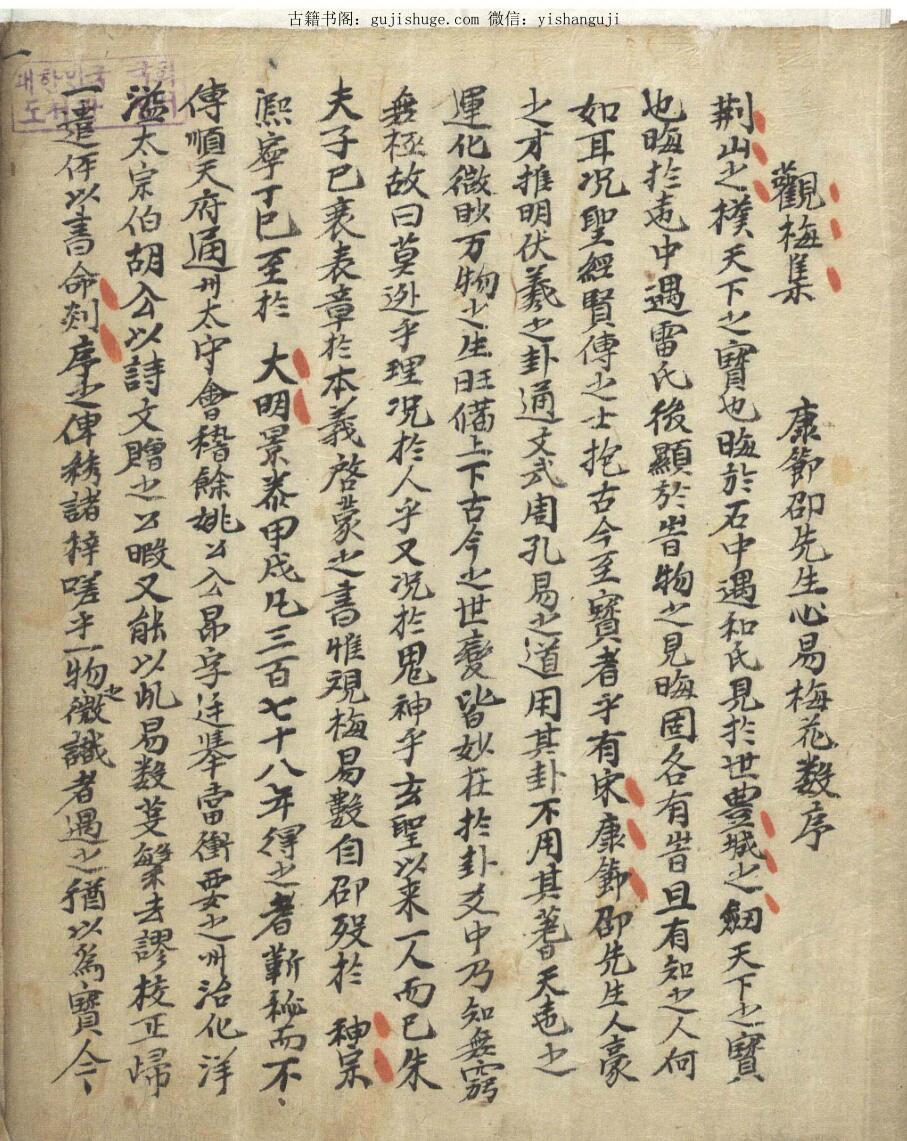 古籍书阁：gujishuge.com 微信：yishanguji
대한민국 국회
도서관
觀梅集
康節邵先生心易梅花數序
荆山之樸天下之寶也晦於石中遇和氏見於世豊城之劒天下之寶
也晦於地中遇雷氏後顯於旹物之見晦固各有旹且有知之人何
如耳况聖經賢傳之士抱古今至寶者乎有宋康節邵先生人豪
之才推明伏羲之卦通文武周孔易之道用其卦不用其蓍天地之
運化微眇万物之生旺備上下古今之世變皆妙在於卦爻中乃知無窮
無極故曰莫逃乎理况於人乎又况於鬼神乎玄聖以来一人而已朱
夫子已裒表章於本義啓蒙之書惟視梅易數自邵殁於 神宗
熈寧丁巳至於 大明景泰甲戌凡三百七十八年得之者靳秘而不
傳順天府通州太守會稽餘姚公昂字廷擧當衝要之州治化洋
溢太宗伯胡公以詩文贈之公暇又能以乩易數芟繁去謬校正歸
一遣伻以書命剡序之俾綉諸梓嗟乎一物之微識者遇之猶以爲寶今